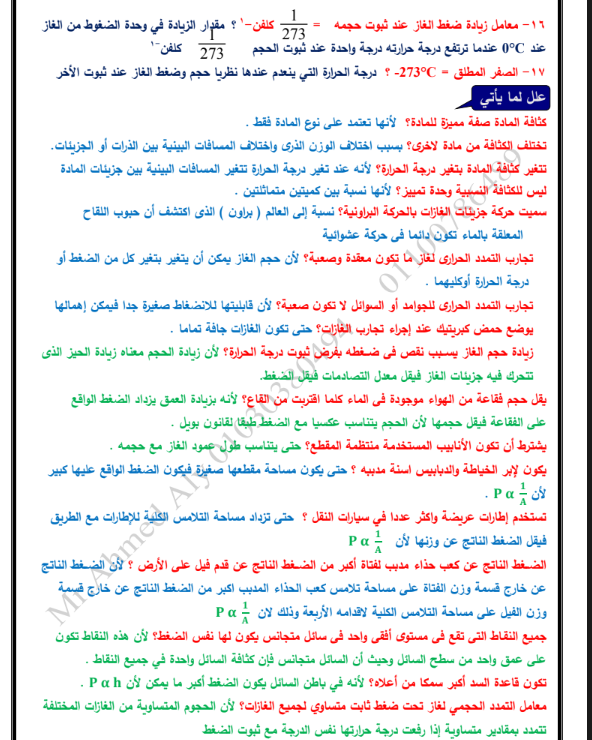 ١٦- معامل زيادة ضغط الغاز عند ثبوت حجمه = 1/273 كلفن⁻¹ ؟ مقدار الزيادة في وحدة الضغوط من الغاز
عند 0°C عندما ترتفع درجة حرارته درجة واحدة عند ثبوت الحجم 1/273 كلفن⁻¹
١٧- الصفر المطلق = 273°C- ؟ درجة الحرارة التي ينعدم عندها نظريا حجم وضغط الغاز عند ثبوت الأخر
علل لما يأتي
كثافة المادة صفة مميزة للمادة؟ لأنها تعتمد على نوع المادة فقط .
تختلف الكثافة من مادة لاخرى؟ بسبب اختلاف الوزن الذرى واختلاف المسافات البينية بين الذرات أو الجزيئات.
تتغير كثافة المادة بتغير درجة الحرارة؟ لأنه عند تغير درجة الحرارة تتغير المسافات البينية بين جزيئات المادة
ليس للكثافة النسبية وحدة تمييز؟ لأنها نسبة بين كميتين متماثلتين .
سميت حركة جزيئات الغازات بالحركة البراونية؟ نسبة إلى العالم ( براون ) الذى اكتشف أن حبوب اللقاح
المعلقة بالماء تكون دائما فى حركة عشوائية
تجارب التمدد الحرارى لغاز ما تكون معقدة وصعبة؟ لأن حجم الغاز يمكن أن يتغير بتغير كل من الضغط أو
درجة الحرارة أوكليهما .
تجارب التمدد الحرارى للجوامد أو السوائل لا تكون صعبة؟ لأن قابليتها للانضغاط صغيرة جدا فيمكن إهمالها
يوضع حمض كبريتيك عند إجراء تجارب الغازات؟ حتى تكون الغازات جافة تماما .
زيادة حجم الغاز يسبب نقص فى ضغطه بفرض ثبوت درجة الحرارة؟ لأن زيادة الحجم معناه زيادة الحيز الذى
تتحرك فيه جزيئات الغاز فيقل معدل التصادمات فيقل الضغط.
يقل حجم فقاعة من الهواء موجودة فى الماء كلما اقتربت من القاع؟ لأنه بزيادة العمق يزداد الضغط الواقع
على الفقاعة فيقل حجمها لأن الحجم يتناسب عكسيا مع الضغط طبقا لقانون بويل .
يشترط أن تكون الأنابيب المستخدمة منتظمة المقطع؟ حتى يتناسب طول عمود الغاز مع حجمه .
يكون لإبر الخياطة والدبابيس اسنة مدببه ؟ حتى يكون مساحة مقطعها صغيرة فيكون الضغط الواقع عليها كبير
لأن P α 1/A .
تستخدم إطارات عريضة واكثر عددا في سيارات النقل ؟ حتى تزداد مساحة التلامس الكلية للإطارات مع الطريق
فيقل الضغط الناتج عن وزنها لأن P α 1/A
الضغط الناتج عن كعب حذاء مدبب لفتاة أكبر من الضغط الناتج عن قدم فيل على الأرض ؟ لأن الضغط الناتج
عن خارج قسمة وزن الفتاة على مساحة تلامس كعب الحذاء المدبب اكبر من الضغط الناتج عن خارج قسمة
وزن الفيل على مساحة التلامس الكلية لاقدامه الأربعة وذلك لان P α 1/A
جميع النقاط التى تقع فى مستوى أفقى واحد فى سائل متجانس يكون لها نفس الضغط؟ لأن هذه النقاط تكون
على عمق واحد من سطح السائل وحيث أن السائل متجانس فإن كثافة السائل واحدة في جميع النقاط .
تكون قاعدة السد أكبر سمكا من أعلاه؟ لأنه في باطن السائل يكون الضغط أكبر ما يمكن لأن P α h .
معامل التمدد الحجمي لغاز تحت ضغط ثابت متساوي لجميع الغازات؟ لأن الحجوم المتساوية من الغازات المختلفة
تتمدد بمقادير متساوية إذا رفعت درجة حرارتها نفس الدرجة مع ثبوت الضغط